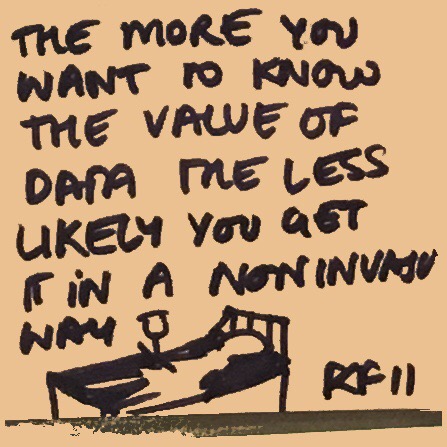 THE MORE YOU
WANT TO KNOW
THE VALUE OF
DATA THE LESS
LIKELY YOU GET
IT IN A NONINVASIV
WAY
RCF11